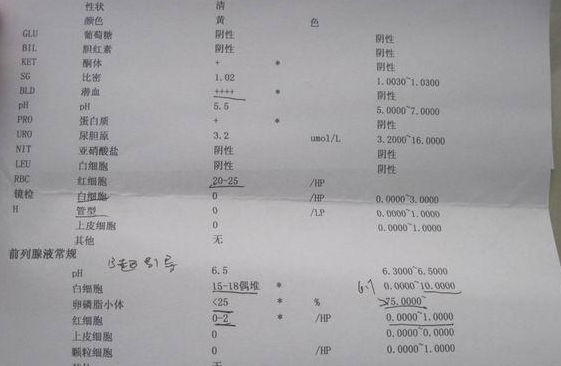 性状 清
颜色 黄 色
GLU 葡萄糖 阴性 阴性
BIL 胆红素 阴性 阴性
KET 酮体 + * 阴性
SG 比密 1.02 1.0030~1.0300
BLD 潜血 ++++ * 阴性
pH pH 5.5 5.0000~7.0000
PRO 蛋白质 + * 阴性
URO 尿胆原 3.2 umol/L 3.2000~16.0000
NIT 亚硝酸盐 阴性 阴性
LEU 白细胞 阴性 阴性
RBC 红细胞 20-25 /HP
镜检 白细胞 0 /HP 0.0000~3.0000
H 管型 0 /LP 0.0000~1.0000
上皮细胞 0 0.0000~1.0000
其他 无
前列腺液常规
B超引导
pH 6.5 6.3000~6.5000
白细胞 15-18偶堆 * 0.0000~10.0000
卵磷脂小体 <25 * % >75.0000~
红细胞 0-2 * /HP 0.0000~1.0000
上皮细胞 0 0.0000~0.0000
颗粒细胞 0 /HP 0.0000~1.0000
无